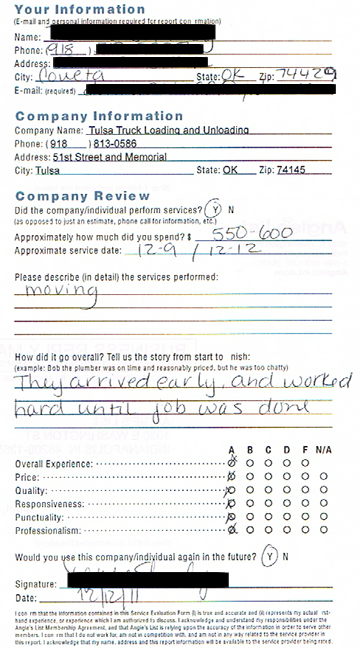 Your Information
(E-mail and personal information required for report con rmation)
Name:
Phone: (918)
Address:
City: Coweta State: OK Zip: 74429
E-mail: (required)
Company Information
Company Name: Tulsa Truck Loading and Unloading
Phone: (918 ) 813-0586
Address: 51st Street and Memorial
City: Tulsa State: OK Zip: 74145
Company Review
Did the company/individual perform services? Y N
(as opposed to just an estimate, phone call for information, etc.)
Approximately how much did you spend? $ 550-600
Approximate service date: 12-9 / 12-12
Please describe (in detail) the services performed:
moving
How did it go overall? Tell us the story from start to nish:
(example: Bob the plumber was on time and reasonably priced, but he was too chatty)
They arrived early, and worked
hard until job was done
A B C D F N/A
Overall Experience:
Price:
Quality:
Responsiveness:
Punctuality:
Professionalism:
Would you use this company/individual again in the future? Y N
Signature:
Date: 12/12/11
I con rm that the information contained in this Service Evaluation Form (i) is true and accurate and (ii) represents my actual rst-
hand experience, or experience which I am authorized to discuss. I acknowledge and understand my responsibilities under the
Angie's List Membership Agreement, and that Angie's List is relying upon the accuracy of the information in order to serve other
members. I con rm that I do not work for, am not in competition with, and am not in any way related to the service provider in
this report. I acknowledge that my name, address and this report information will be available to the service provider being rated.